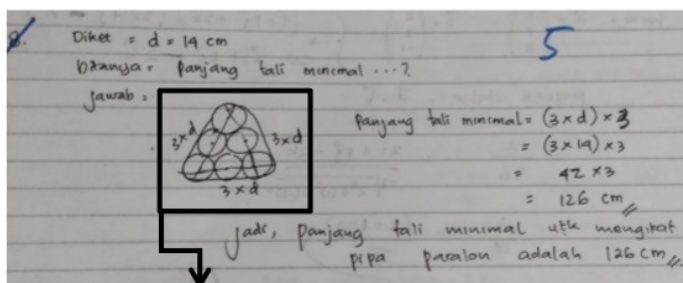 8. Diket = d = 14 cm
5
ditanya = Panjang tali minimal ...?
Jawab =
3 x d
3 x d
3 x d
Panjang tali minimal = (3 x d) x 3
= (3 x 14) x 3
= 42 x 3
= 126 cm //
Jadi, panjang tali minimal utk mengikat
pipa paralon adalah 126 cm //